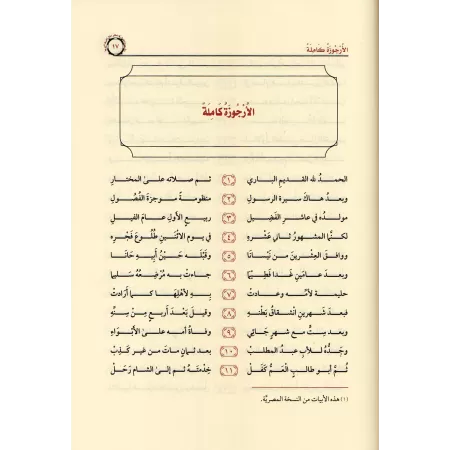 الأُرْجُوزَةُ كَامِلَةً
١٧
الأُرْجُوزَةُ كَامِلَةً
الحمدُ لله القديمِ الباري (١) ثم صلاته على المختارِ
وبعدُ هاك سيرة الرسولِ (٢) منظومةً موجزةَ الفُصُولِ
مولدُه في عاشرِ الفَضِيلِ (٣) ربيعٍ الأولِ عامَ الفيلِ
لكنما المشهورُ ثاني عشرِهِ (٤) في يوم الاثْنَيْنِ طُلُوعَ فَجْرِهِ
ووافَقَ العِشْرينَ من نَيْسَانَا (٥) وقَبْلَه حَيْنُ أَبِيهِ حَانَا
وبعد عامَيْنِ غَدا فَطِيْمَا (٦) جاءتْ به مُرْضِعُهُ سَلِيما
حليمةٌ لأمِّه وعادتْ (٧) بِهِ لأهْلِهَا كما أرَادَتْ
فبعدَ شَهْرينِ انشقاقُ بَطْنِهِ (٨) وقيلَ بَعْدَ أربعٍ مِنْ سِنِّهِ
وبعد سِتٍّ مع شهرٍ جَائِي (٩) وفاةُ أمِّه على الأبْوَاءِ
وجَدُّه للأبِ عبدُ المطلبْ (١٠) بعد ثمانٍ ماتَ من غيرِ كَذِبْ
ثُمَّ أبو طالبٍ العَمُّ كَفَلْ (١١) خِدْمَتَهُ ثم إلى الشامِ رَحَلْ
(١) هذه الأبيات من النسخة المصريَّة.